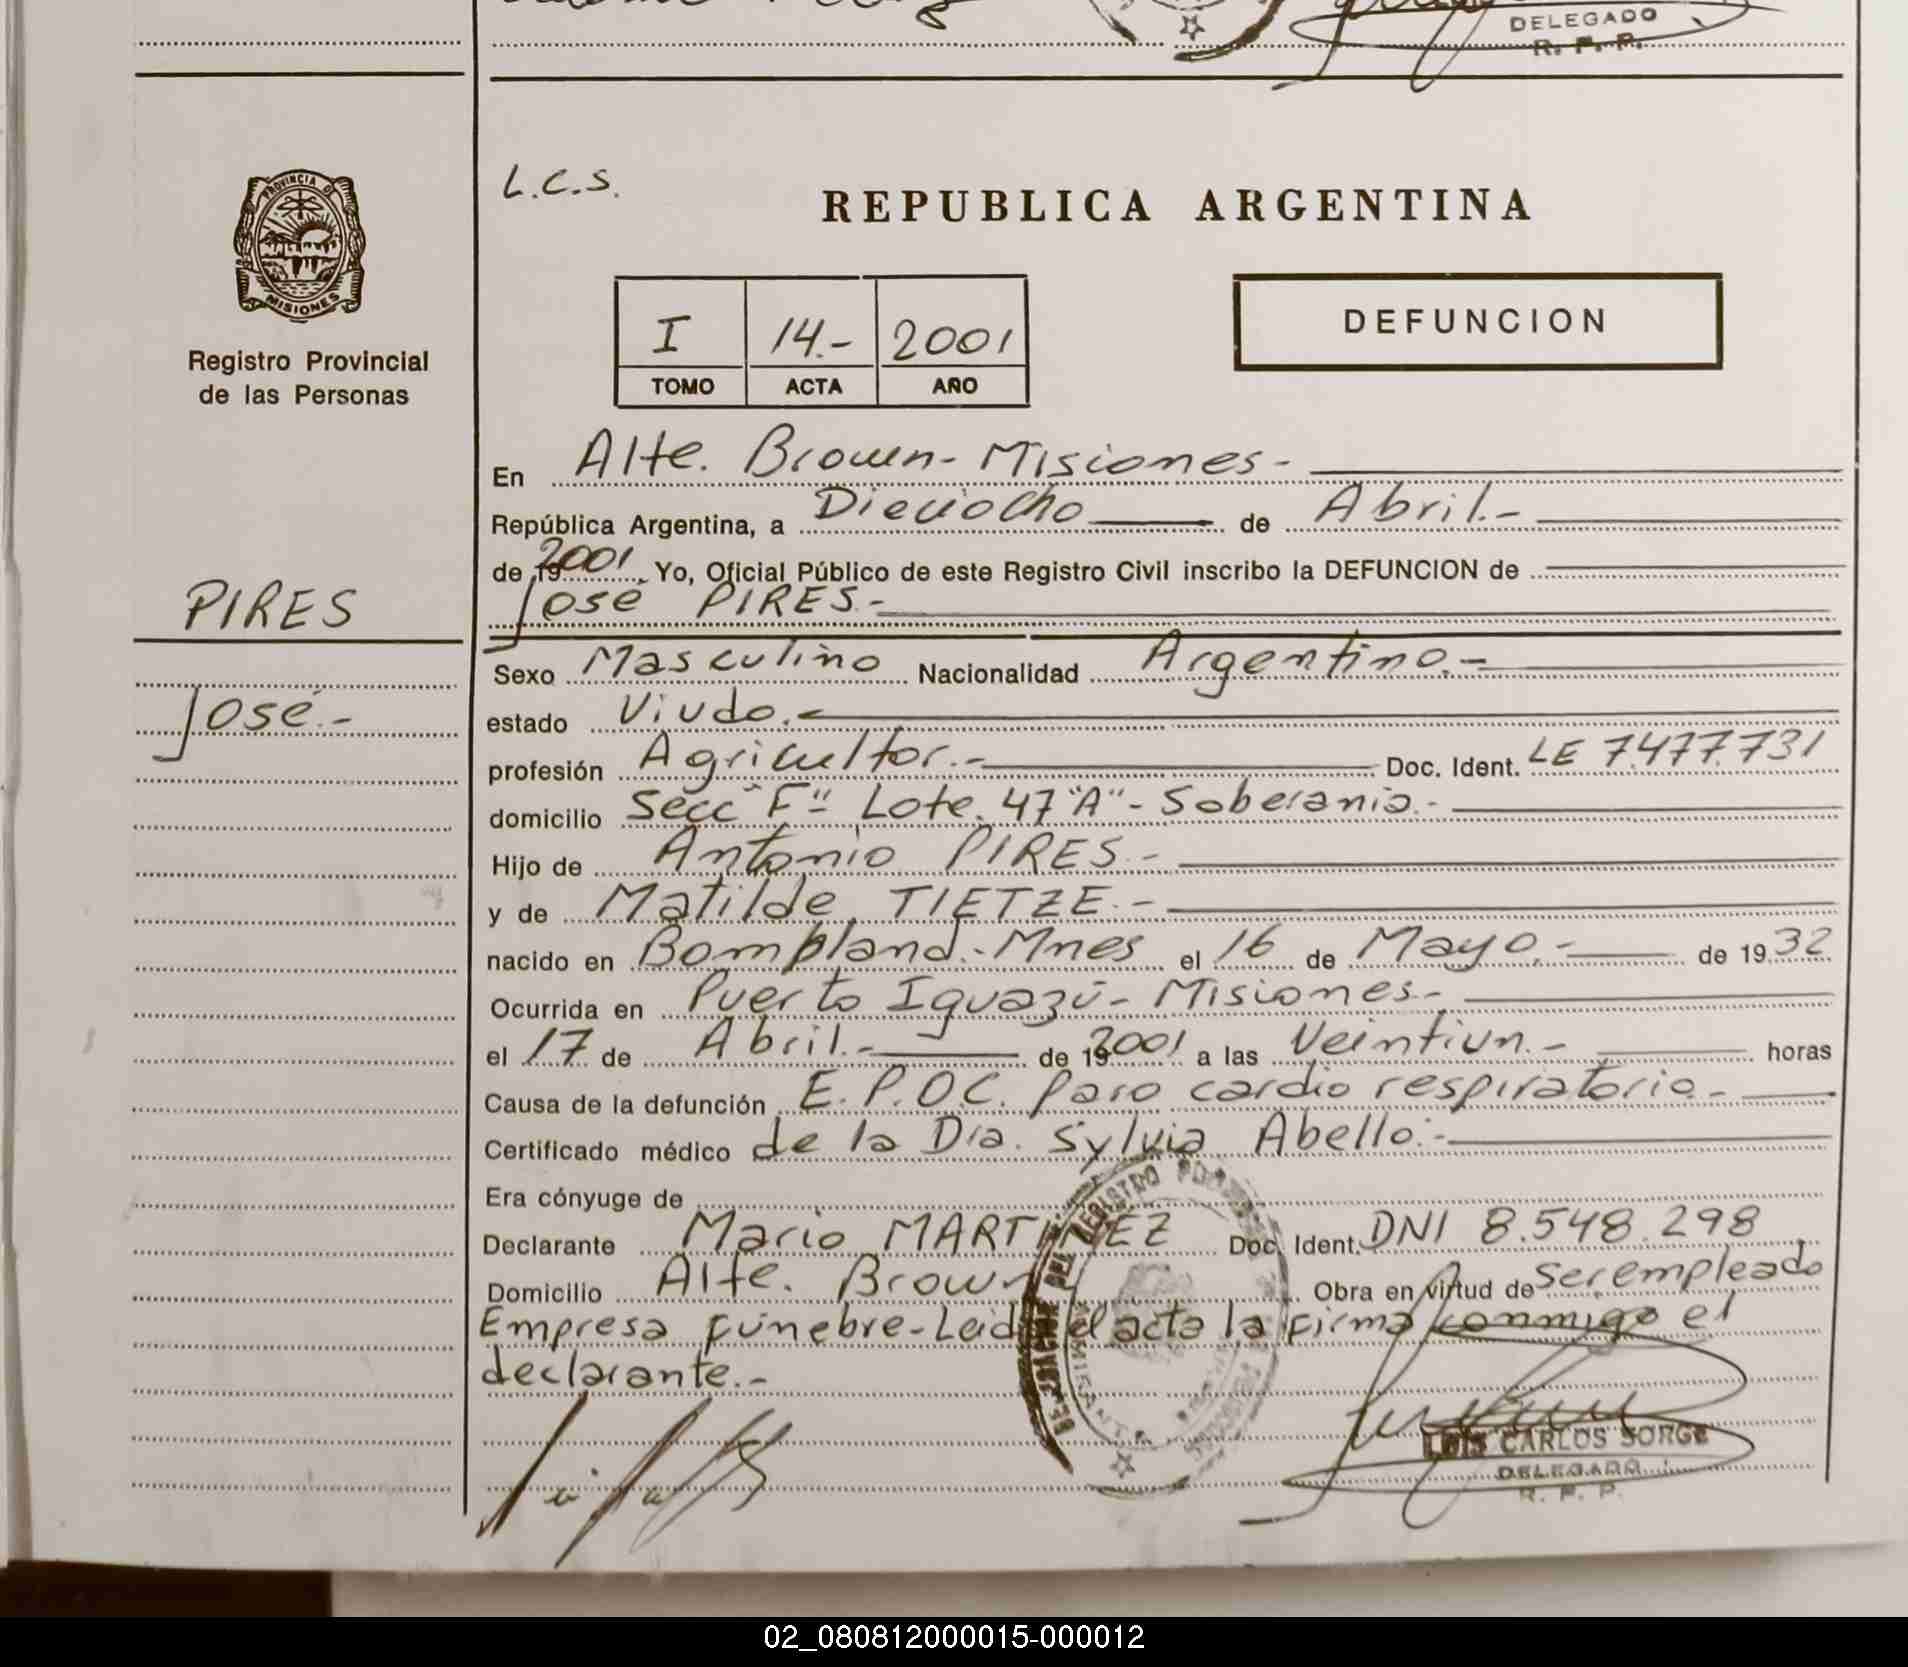 DELEGADO
R. P. P.
PROVINCIA DE
MISIONES
Registro Provincial
de las Personas
PIRES
José.-
L.C.S.
REPUBLICA ARGENTINA
I 14.- 2001
TOMO ACTA AÑO
DEFUNCION
En Alte. Brown- Misiones-
República Argentina, a Dieciocho de Abril.-
de 19 2001, Yo, Oficial Público de este Registro Civil inscribo la DEFUNCION de
José PIRES.-
Sexo Masculino Nacionalidad Argentino.-
estado Viudo.-
profesión Agricultor.- Doc. Ident. LE 7.477.731
domicilio Secc "F" Lote. 47 "A"- Soberania.-
Hijo de Antonio PIRES.-
y de Matilde TIETZE.-
nacido en Bompland.-Mnes el 16 de Mayo.- de 1932
Ocurrida en Puerto Iguazú- Misiones.-
el 17 de Abril.- de 19 2001 a las Veintiun.- horas
Causa de la defunción E.P.O.C. Paro cardio respiratorio.-
Certificado médico de la Dra. Sylvia Abello.-
Era cónyuge de
Declarante Mario MARTINEZ Doc. Ident. DNI 8.548.298
Domicilio Alte. Brown Obra en virtud de ser empleado
Empresa fúnebre-Leida el acta la firma conmigo el
declarante.-
LUIS CARLOS SORGE
DELEGADO
R. P. P.
02_080812000015-000012